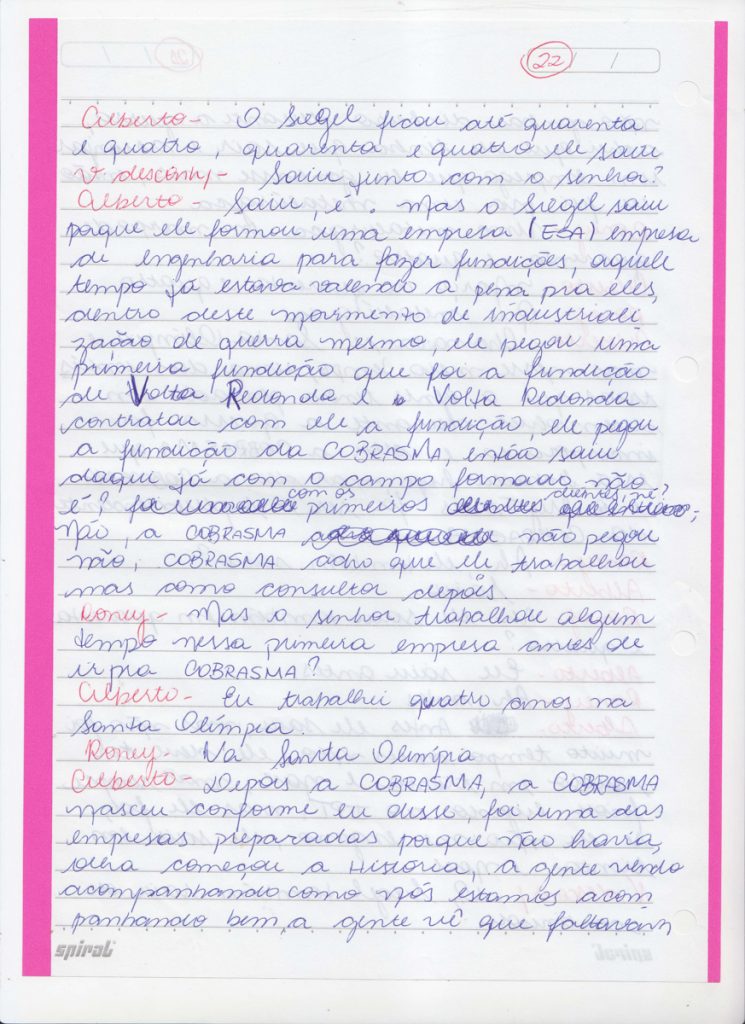 22 / /
Alberto - O Siegel ficou até quarenta
e quatro, quarenta e quatro ele saiu
v. desconh, - Saiu junto com o senhor?
Alberto - Saiu, é. Mas o Siegel saiu
porque ele formou uma empresa (ESA) empresa
de engenharia para fazer fundições, aquele
tempo já estava valendo a pena pra eles,
dentro deste movimento de industriali
zação de guerra mesmo, ele pegou uma
primeira fundição que foi a fundição
de Volta Redonda e Volta Redonda
contratou com ele a fundição, ele pegou
a fundição da COBRASMA, então saiu
daqui já com o campo formado não
é? com os primeiros clientes, né?
Não, a COBRASMA não pegou
não, COBRASMA acho que ele trabalhou
mas como consultor depois.
Roney - Mas o senhor trabalhou algum
tempo nessa primeira empresa antes de
ir pra COBRASMA?
Alberto - Eu trabalhei quatro anos na
Santa Olímpia.
Roney - Na Santa Olímpia
Alberto - Depois a COBRASMA, a COBRASMA
nasceu conforme eu disse, foi uma das
empresas preparadas porque não havia,
começou a História, a gente vendo
acompanhando como nós estamos acom
panhando bem, a gente vê que faltavam
spiral